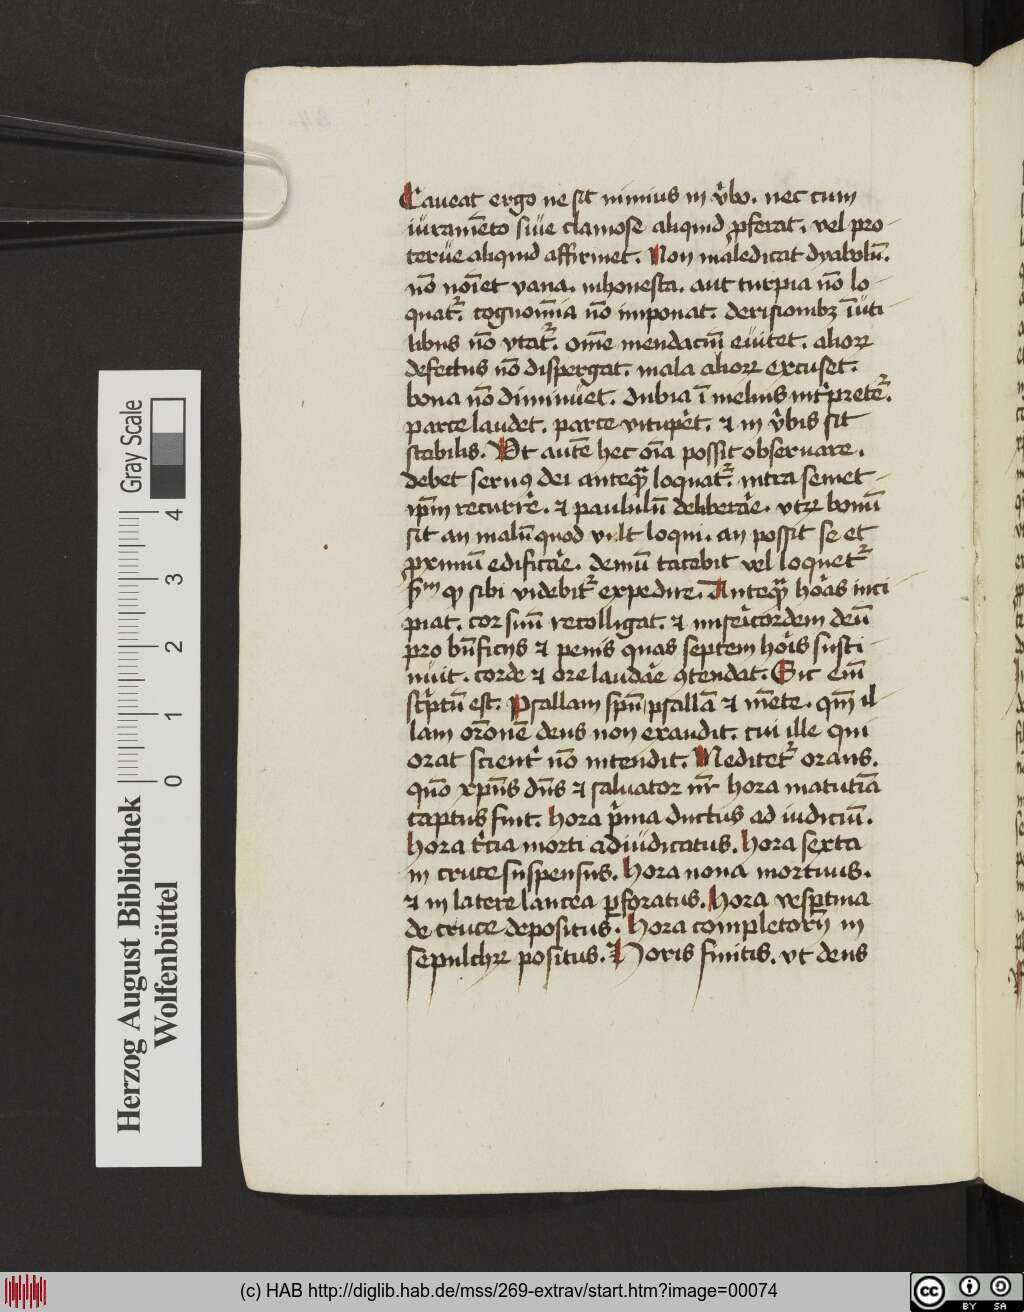 Caueat ergo ne sit nimius in v̾bo. nec cum
iuramēto siue clamose aliquid ꝓferat. vel pro-
terue aliquid affirmet. Non maledicat dyabolū.
nō noīet vana. inhonesta. aut turpia nō lo-
quat᷑. cognomīa nō imponat. derisionibꝫ īuti
libus nō vtat᷑. om̄e mendaciū euitet. alioꝝ
defectus nō dispergat. mala alioꝝ excuset.
bona nō diminuet. dubia ī melius int̾prete᷑.
parce laudet. parce vitup̾et. ⁊ in v̾bis sit
stabilis. Vt autē hec oīa possit obseruare.
debet seruꝰ dei anteqꝫ loquat᷑. intra semet-
ip̄m recurre̾. ⁊ paululū deliberar̾e. vtꝝ bonū
sit an malū quod vult loqui. an possit se et
ꝓximū edificar̾e. demū tacebit vel loquet᷑
ẜm ꝙ sibi videbit᷑ expedire. Anteqꝫ hor̾as inci-
piat. cor suū recolligat. ⁊ miser̾icordem deū
pro bn̄ficijs ⁊ penis quas septem hor̾is susti-
nuit. corde ⁊ ore laudar̾e ꝯtendat. Sic em̄
scr̾ptū est. Psallam spū psallā ⁊ mēte. qm̄ il
lam oronē deus non exaudit. cui ille qui
orat scient̾ nō intendit. Meditet᷑ orans.
quō xp̄us dn̄s ⁊ saluator nr̄ hora matutīa
captus fuit. hora p̾ma ductus ad iudiciū.
hora t̾cia morti adiudicatus. hora sexta
in cruce suspensus. hora nona mortuus.
⁊ in latere lancea ꝑforatus. hora vesꝑtina
de cruce depositus. hora completorij in
sepulchꝝ positus. Horis finitis. vt deus
Gray Scale
4
3
2
1
0
Herzog August Bibliothek
Wolfenbüttel
(c) HAB http://diglib.hab.de/mss/269-extrav/start.htm?image=00074
cc
BY SA